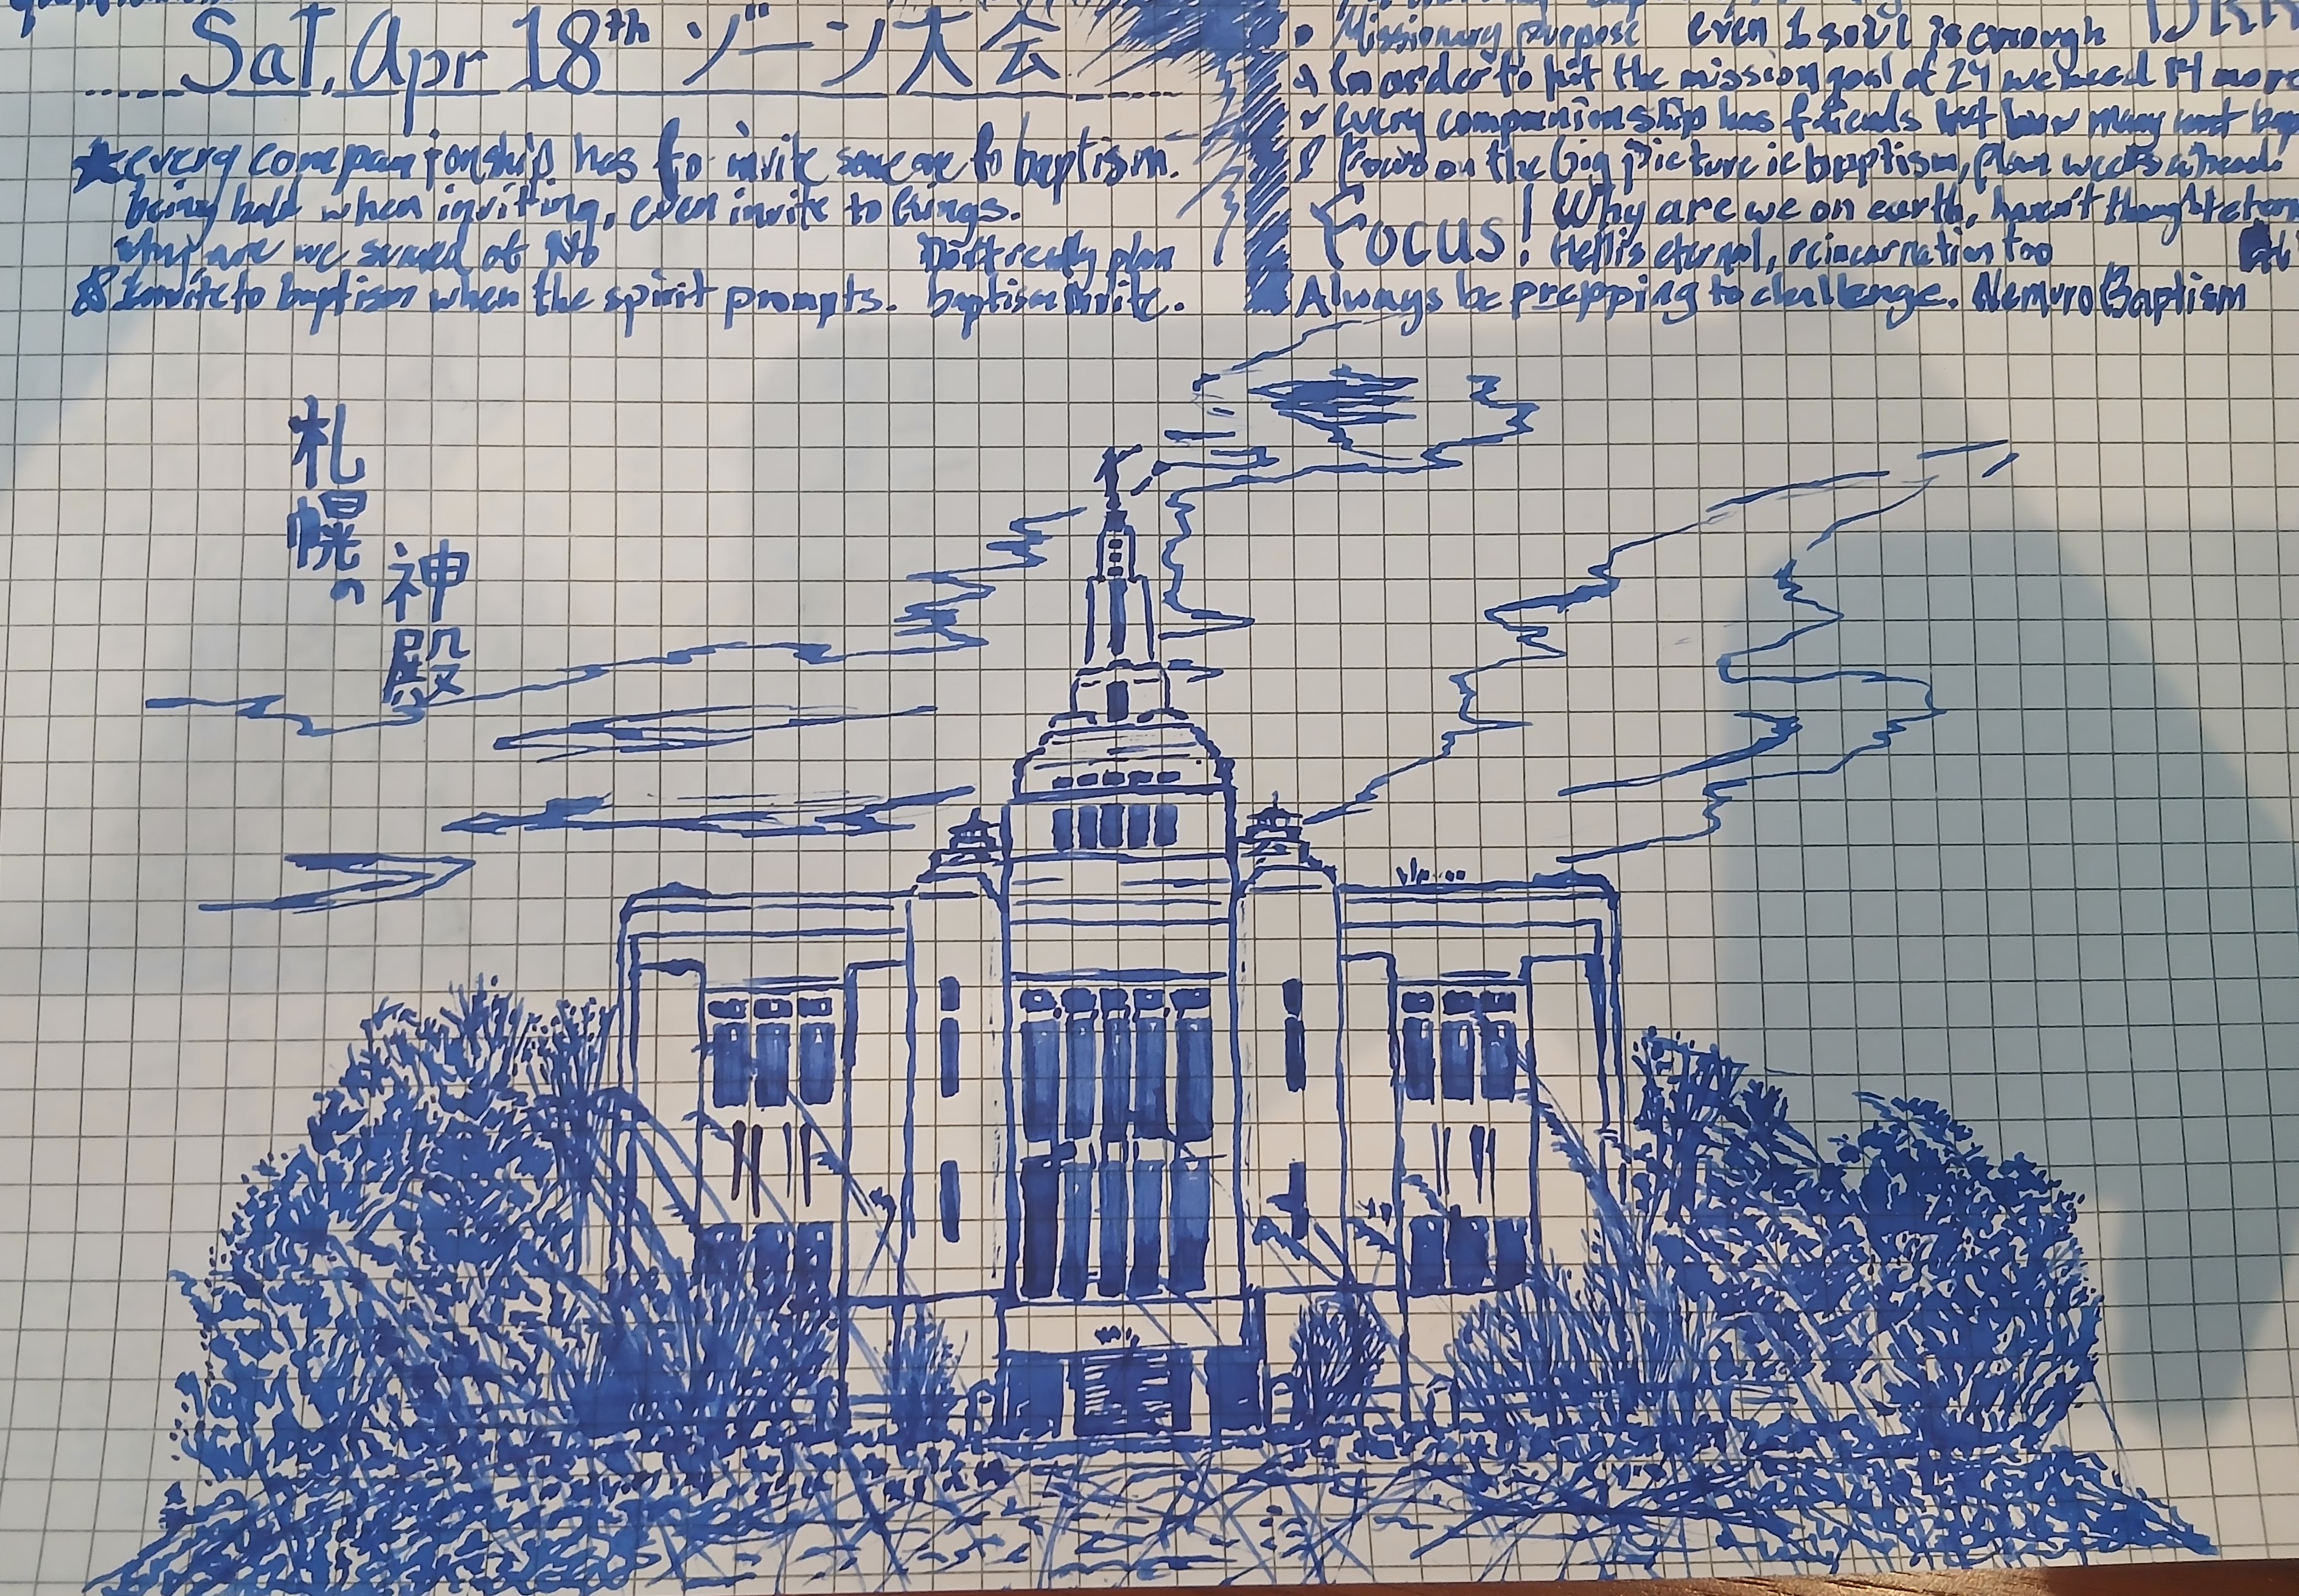 Sat, Apr 18th ゾーン大会
every companionship has to invite someone to baptism.
being bold when inviting, even invite to things.
why are we scared of No
Don't really plan
Invite to baptism when the spirit prompts. baptism invite.
Missionary purpose even 1 soul is enough
In order to hit the mission goal of 24 we need 14 more
every companionship has friends but how many want
Focus on the big picture ie baptism, plan weeks ahead.
Focus! Why are we on earth, haven't thought
Hell is eternal, reincarnation too
Always be prepping to challenge. Nemuro Baptism
札幌の
神殿